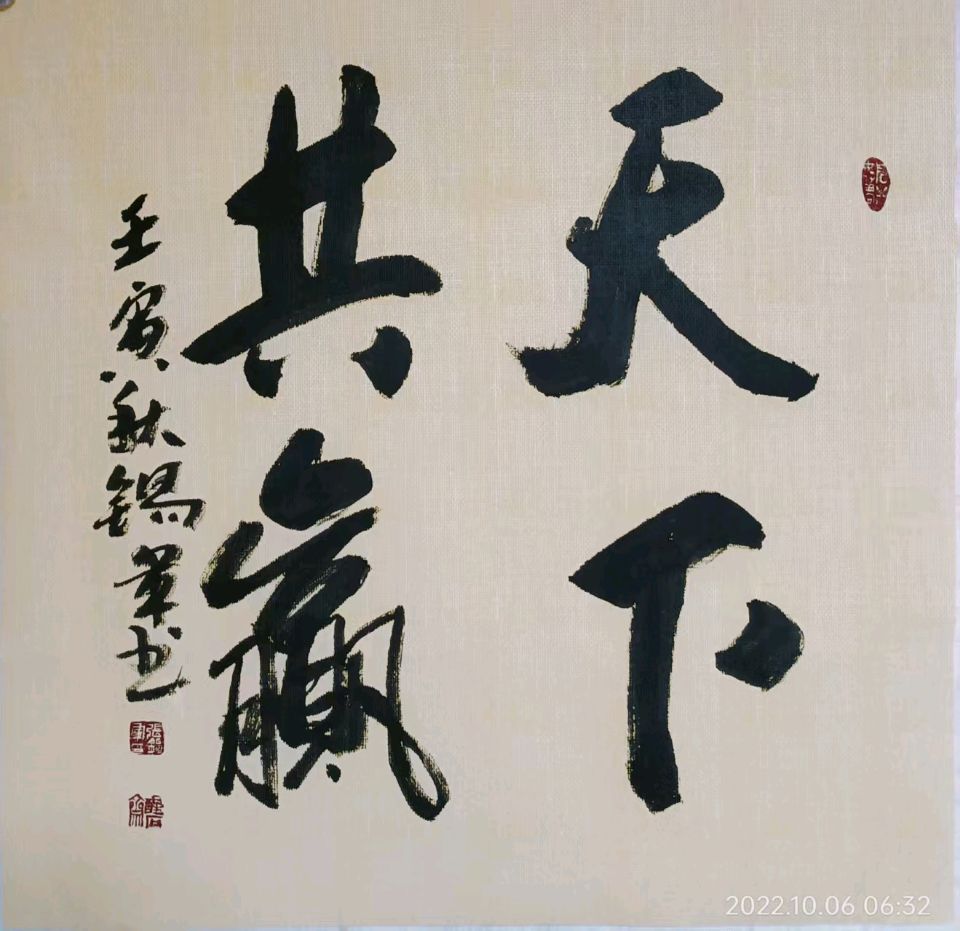 天下
共赢
壬寅秋锡军书
2022.10.06 06:32